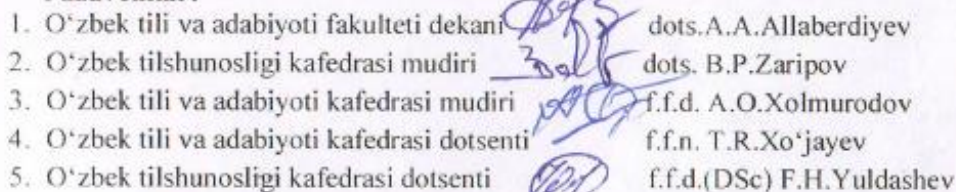 1. O‘zbek tili va adabiyoti fakulteti dekani dots.A.A.Allaberdiyev
2. O‘zbek tilshunosligi kafedrasi mudiri dots. B.P.Zaripov
3. O‘zbek tili va adabiyoti kafedrasi mudiri f.f.d. A.O.Xolmurodov
4. O‘zbek tili va adabiyoti kafedrasi dotsenti f.f.n. T.R.Xo‘jayev
5. O‘zbek tilshunosligi kafedrasi dotsenti f.f.d.(DSc) F.H.Yuldashev